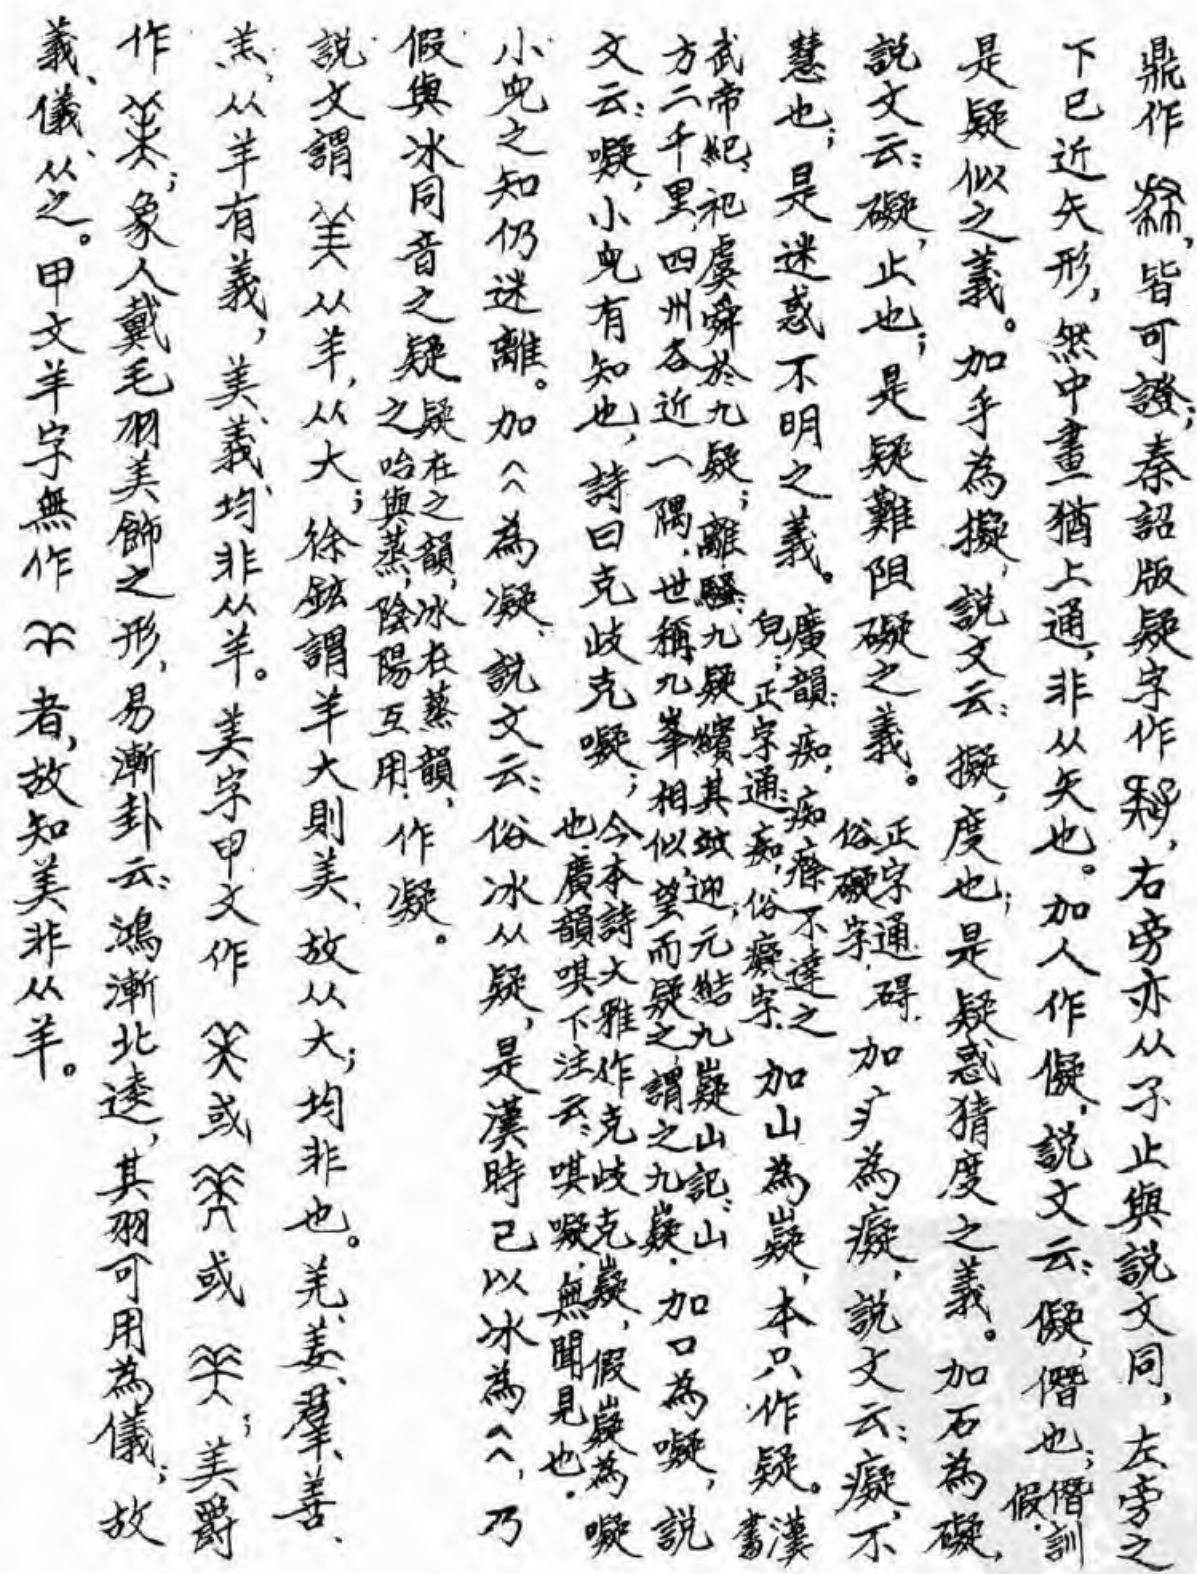 鼎作，皆可證；秦詔版疑字作，右旁亦从子止與説文同，左旁之
下已近矢形，然中畫猶上通，非从矢也。加人作儗，説文云：儗，僭也；僭訓假。
是疑似之義。加手為擬，説文云：擬，度也；是疑惑猜度之義。加石為礙，
説文云：礙，止也；是疑難阻礙之義。正字通，碍，俗礙字。加疒為癡，説文云：癡，不
慧也；是迷惑不明之義。廣韻：痴，痴㾕不達之皃；正字通：痴，俗癡字。加山為嶷，本只作疑。漢書
武帝紀、祀虞舜於九疑；離騷、九疑繽其竝迎；元結九嶷山記：山
方二千里，四州各近一隅，世稱九峯相似，望而疑之，謂之九嶷。加口為噯，説
文云：噯，小兒有知也，詩曰克歧克噯；今本詩大雅作克歧克嶷，假嶷為噯也。廣韻唭下注云：唭噯，無聞見也。
小兒之知仍迷離。加仌為凝，説文云：俗冰从疑，是漢時已以冰為仌，乃
假與冰同音之疑，疑在之韻，冰在蒸韻，之咍與蒸，陰陽互用。作凝。
説文謂美从羊，从大；徐鉉謂羊大則美，故从大；均非也。羌、姜、羣、善、
羔，从羊有義，美、義均非从羊。美字甲文作或或；美爵
作；象人戴毛羽美飾之形，易漸卦云：鴻漸北逵，其羽可用為儀；故
義、儀、从之。甲文羊字無作者，故知美非从羊。